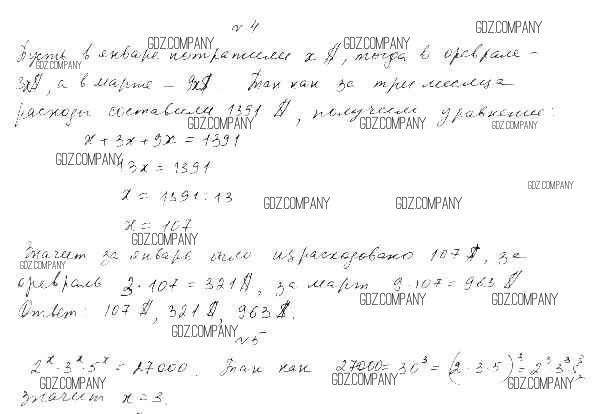 № 4
GDZ.COMPANY
Пусть в январе потратили x $, тогда в феврале -
GDZ.COMPANY GDZ.COMPANY
GDZ.COMPANY
3x$, а в марте - 9x$. Так как за три месяца
расходы составили 1391 $, получим уравнение:
GDZ.COMPANY GDZ.COMPANY GDZ.COMPANY
x + 3x + 9x = 1391
GDZ.COMPANY
13x = 1391
GDZ.COMPANY
x = 1391 : 13
GDZ.COMPANY GDZ.COMPANY
x = 107
GDZ.COMPANY
Значит за январь было израсходовано 107 $, за
GDZ.COMPANY
февраль 3 · 107 = 321 $, за март 9 · 107 = 963 $
GDZ.COMPANY GDZ.COMPANY
Ответ: 107 $, 321 $, 963 $.
GDZ.COMPANY
№ 5
2ˣ · 3ˣ · 5ˣ = 27000. Так как 27000 = 30³ = (2 · 3 · 5)³ = 2³ · 3³ · 5³
GDZ.COMPANY GDZ.COMPANY GDZ.COMPANY
Значит x = 3.